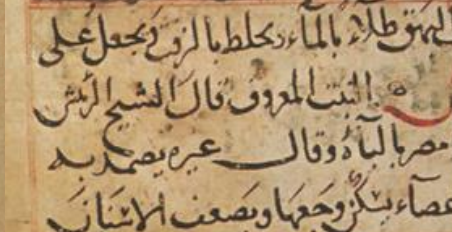 البهق طلاء بالماء ويخلط بالزفت ويجعل على
النبت المعروف قال الشيخ الرئيس
مصر بالباه وقال غيره يضمد به
يسكن وجعها ويضعف الاسنان